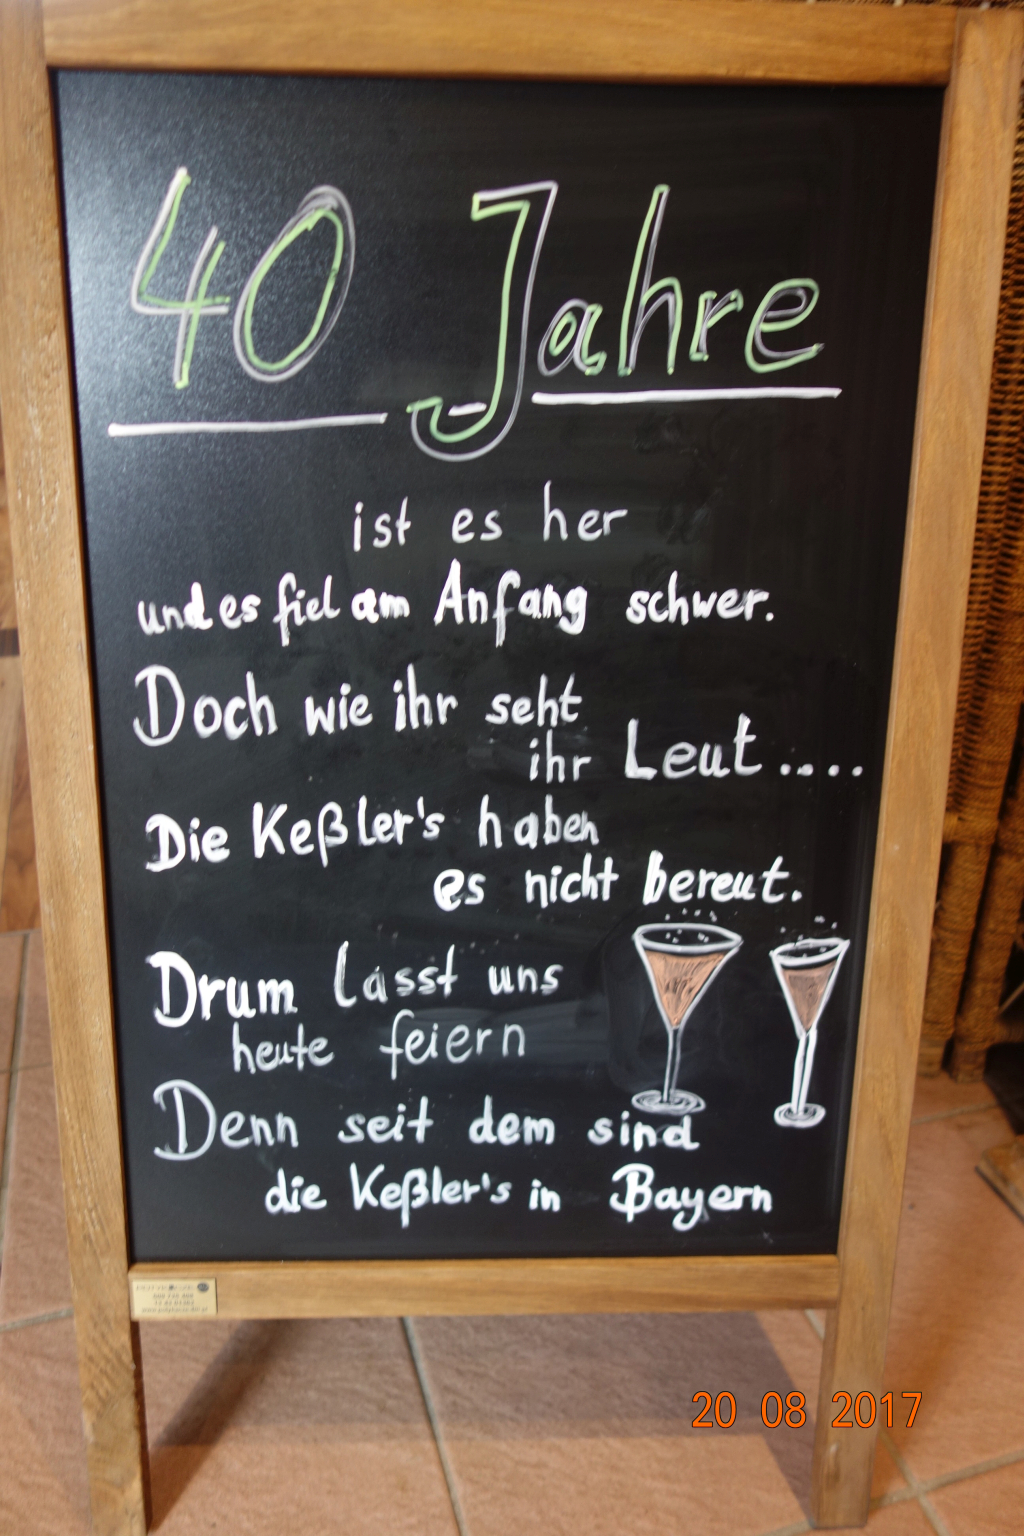 40 Jahre
ist es her
und es fiel am Anfang schwer.
Doch wie ihr seht
ihr Leut....
Die Keßler's haben
es nicht bereut.
Drum lasst uns
heute feiern
Denn seit dem sind
die Keßler's in Bayern
20 08 2017